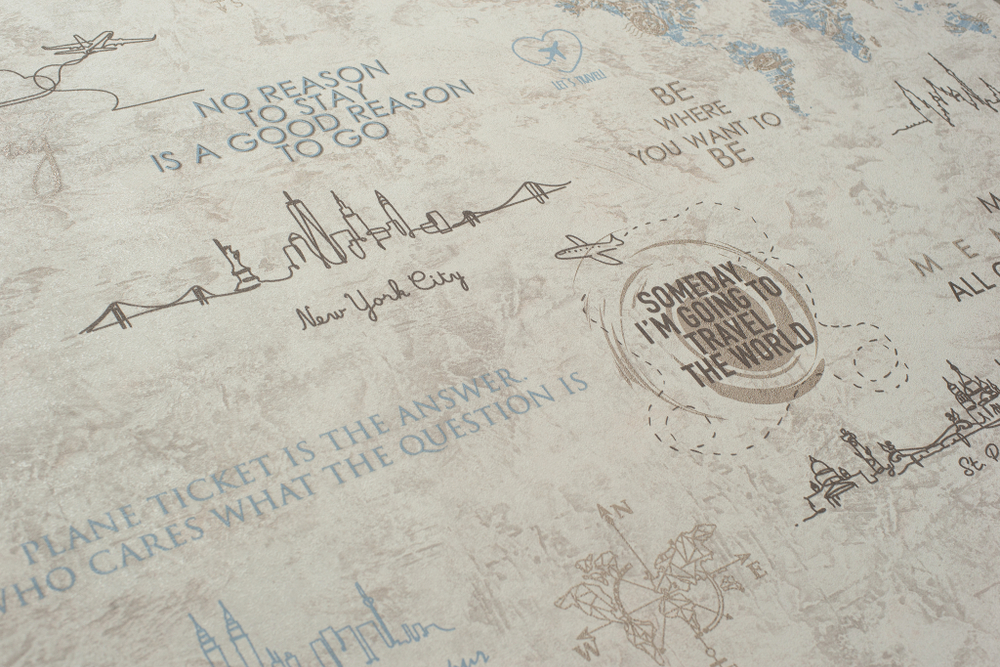 NO REASON
TO STAY
IS A GOOD REASON
TO GO
LET'S TRAVEL!
BE
WHERE
YOU WANT TO
BE
New York City
SOMEDAY
I'M GOING TO
TRAVEL
THE WORLD
ALL
PLANE TICKET IS THE ANSWER
WHO CARES WHAT THE QUESTION IS
St
N
E
W